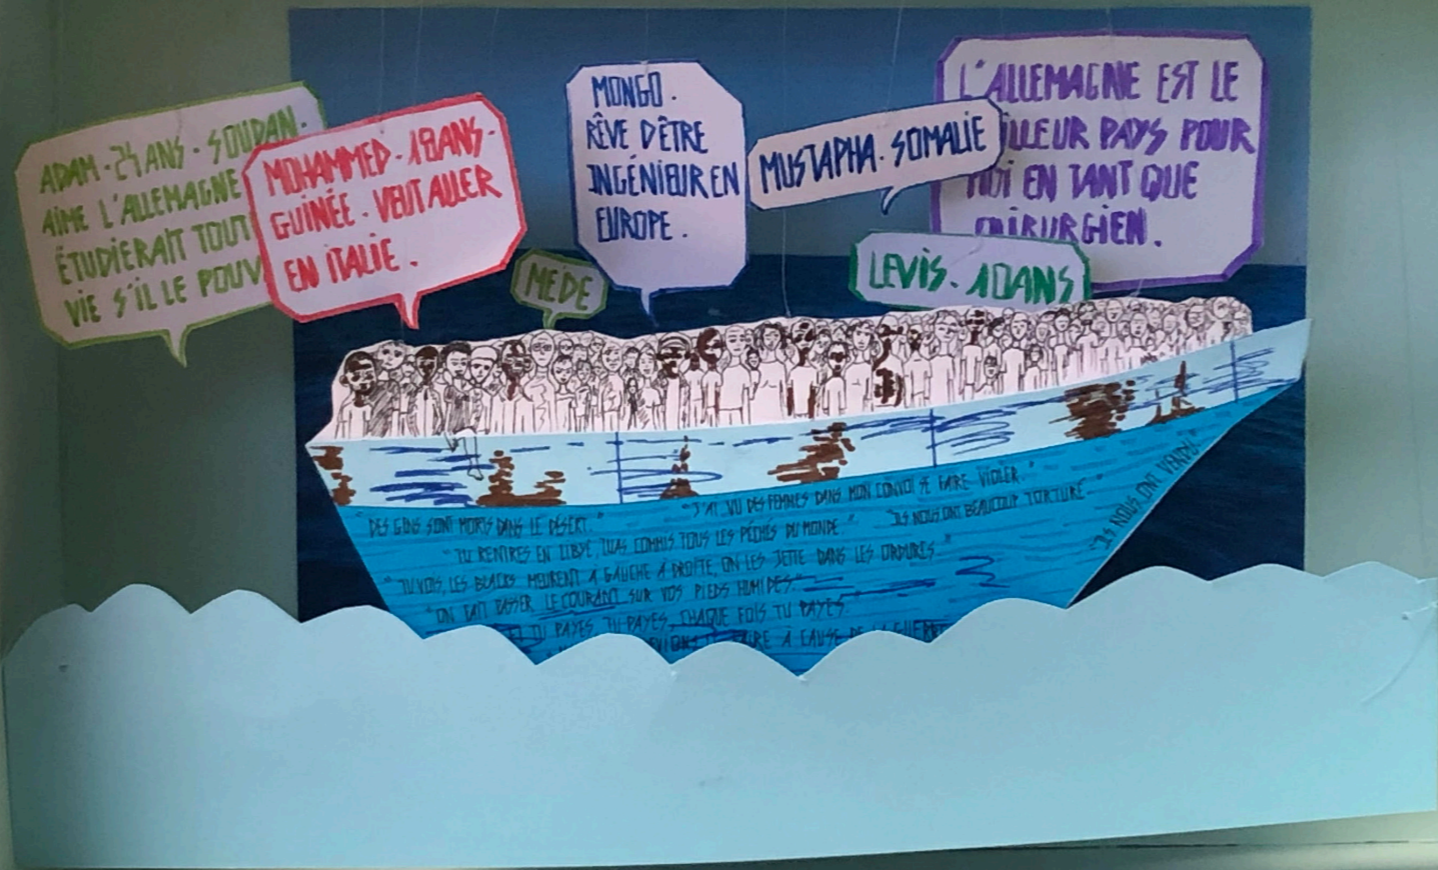 ADAM · 24 ANS · SOUDAN ·
AIME L'ALLEMAGNE
ÉTUDIERAIT TOUT
VIE S'IL LE POUV
MOHAMMED · 18 ANS ·
GUINÉE · VEUT ALLER
EN ITALIE .
MEDE
MONGO .
RÊVE D'ÊTRE
INGÉNIEUR EN
EUROPE .
MUSTAPHA · SOMALIE
L'ALLEMAGNE EST LE
ILLEUR PAYS POUR
MOI EN TANT QUE
CHIRURGIEN .
LEVIS · 10 ANS
"DES GENS SONT MORTS DANS LE DÉSERT."
"J'AI VU DES FEMMES DANS MON CONVOI SE FAIRE VIOLER."
"TU RENTRES EN LIBYE, TU AS COMMIS TOUS LES PÉCHÉS DU MONDE."
"ILS NOUS ONT BEAUCOUP TORTURÉ."
"ILS NOUS ONT VENDU"
"TU VOIS, LES BLACKS MEURENT À GAUCHE À DROITE, ON LES JETTE DANS LES ORDURES."
"ON FAIT PASSER LE COURANT SUR VOS PIEDS HUMIDES."
TU PAYES TU PAYES, CHAQUE FOIS TU PAYES.
FAIRE A CAUSE DE LA GUERRE